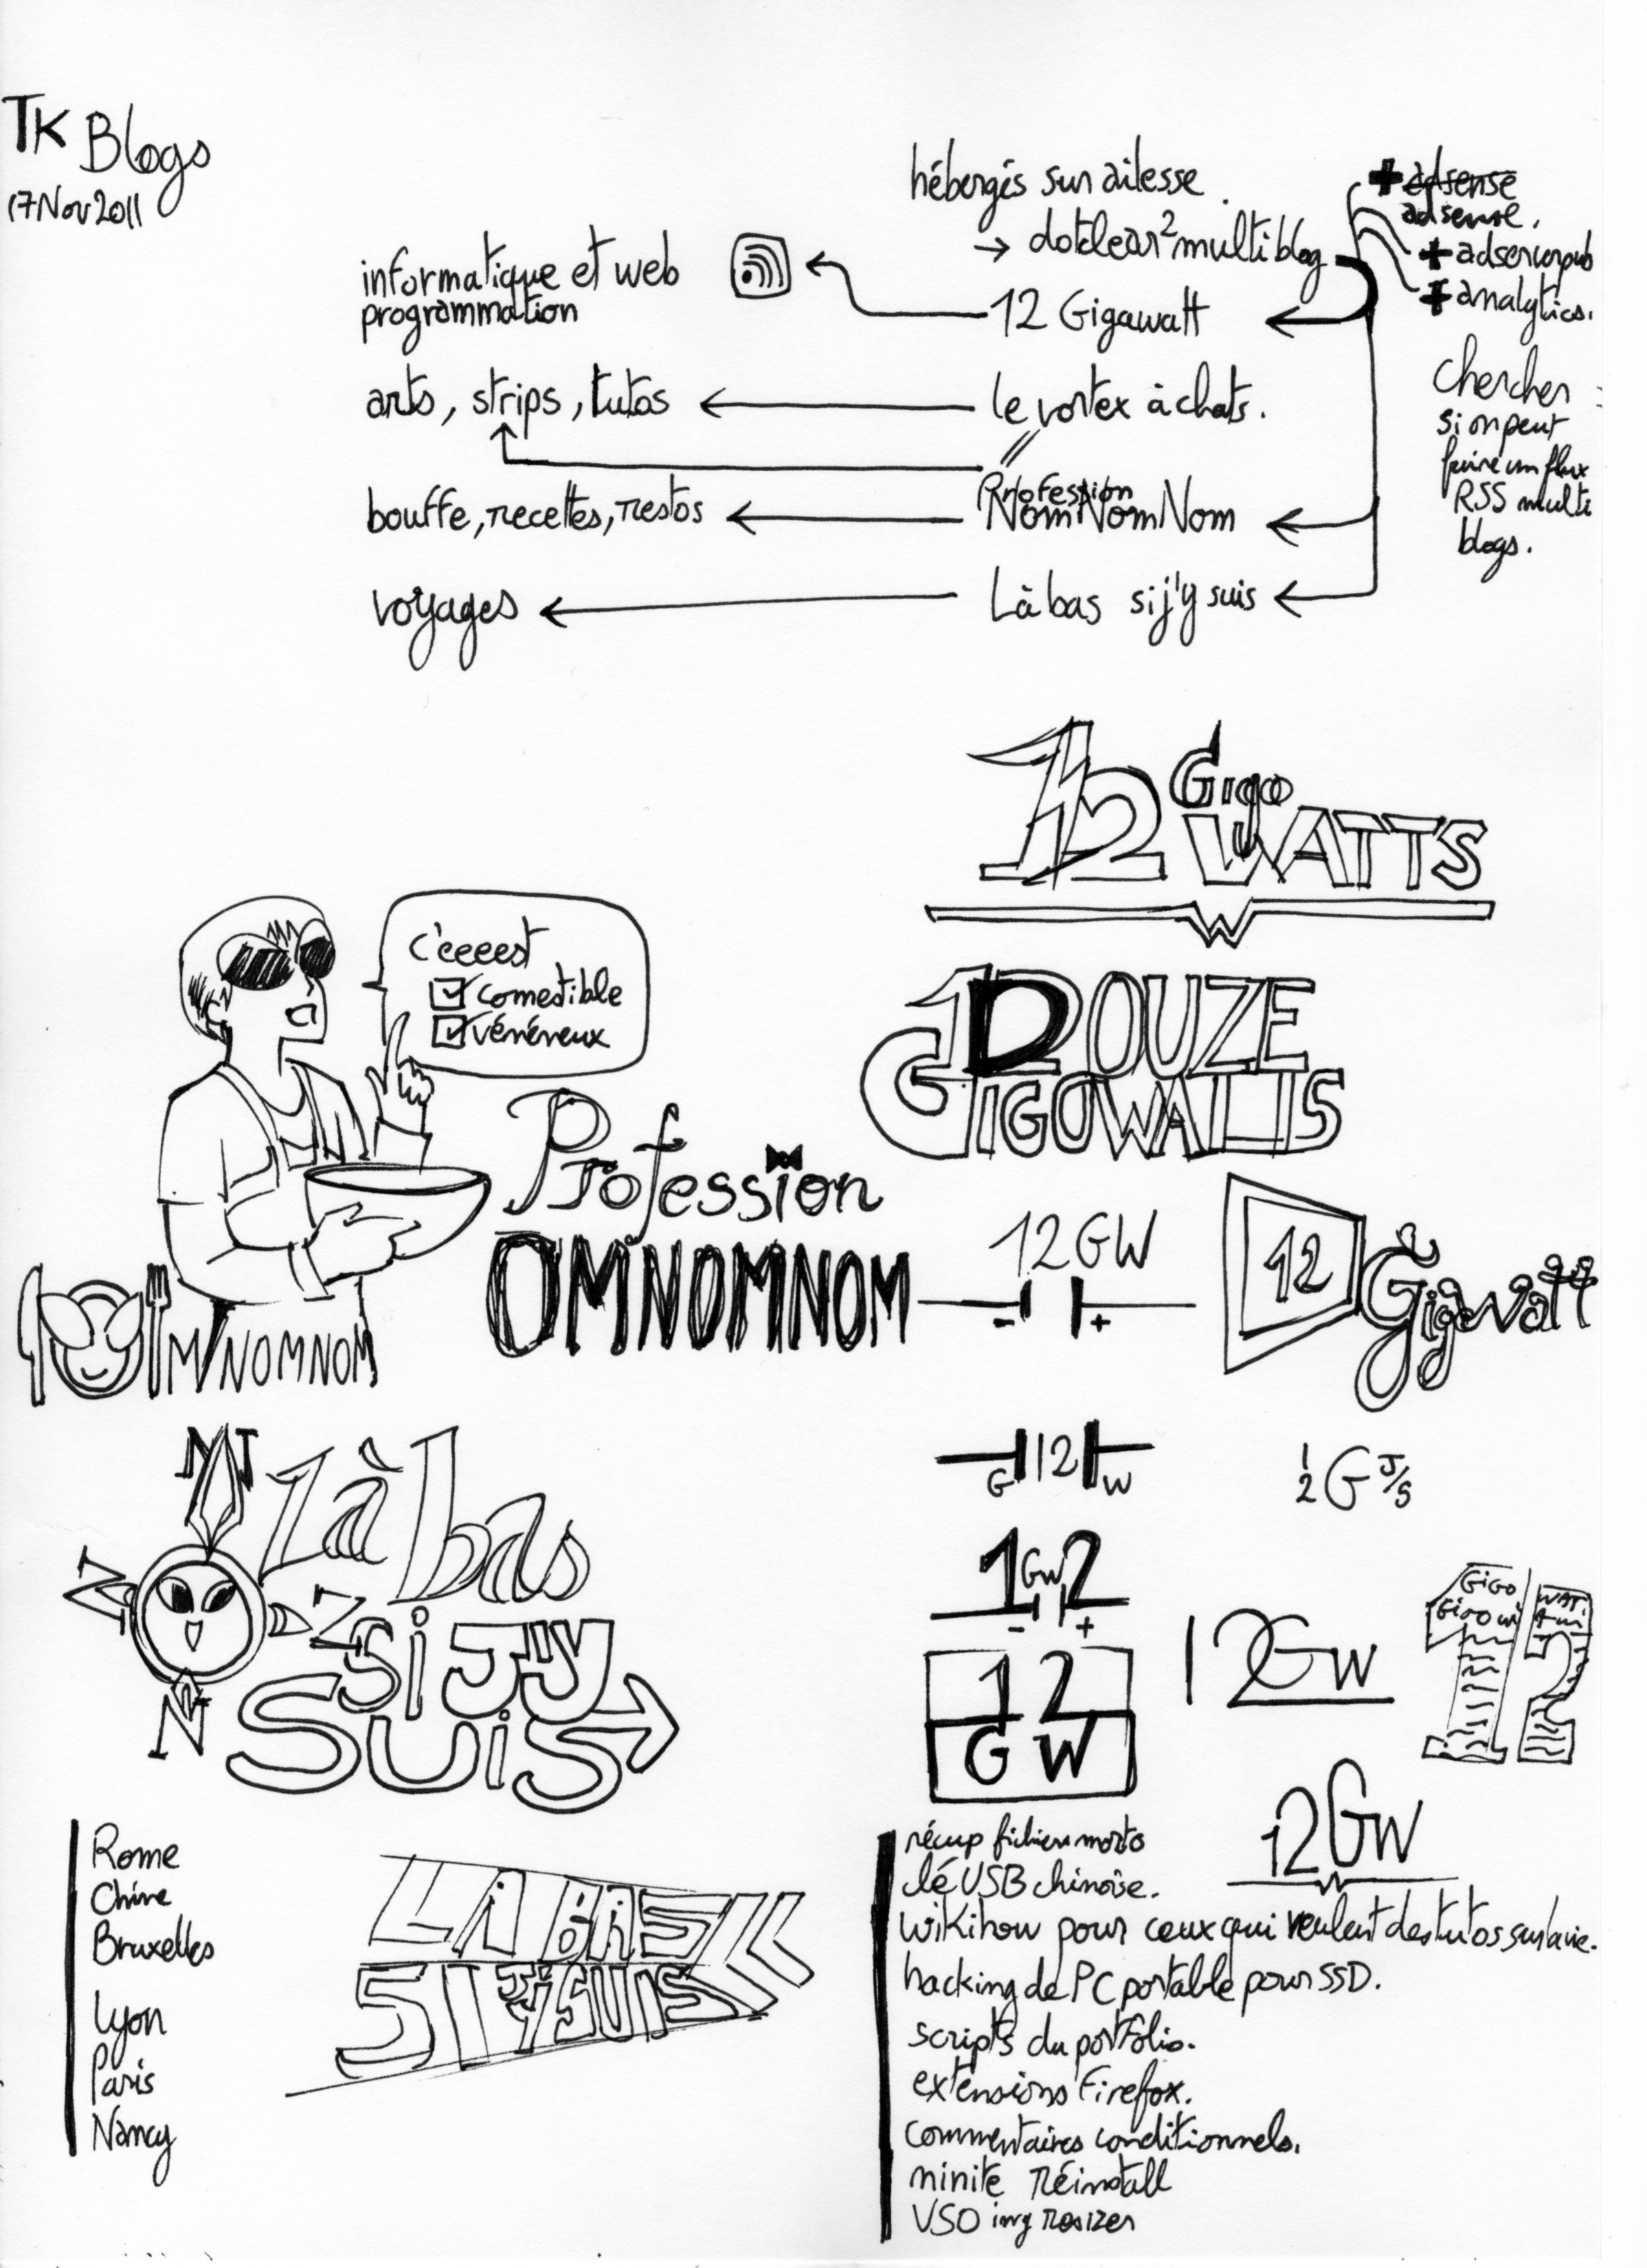 TK Blogs
17 Nov 2011
hébergés sur ailesse.
→ dotclear² multiblog
+ adsense
adsense.
+ adserverpub
+ analytics.
informatique et web
programmation
12 Gigawatt
arts, strips, tutos
le vortex à chats.
bouffe, recettes, restos
Profession
NomNomNom
voyages
Là bas si j'y suis
Chercher
si on peut
faire un flux
RSS multi
blogs.
12 Gigo
WATTS
W
12 DOUZE
GIGOWATTS
c'eeeest
☑ comestible
☑ vénéneux
Profession
OMNOMNOM
M'NOMNOM
12GW
- +
12 Gigowatt
G 12 W
½ G J/s
1 GW 2
- +
12
GW
12GW
GIGO WAT
GIGOWI
12
12GW
N
Z Z
N
Là bas
si J'y
suis
Rome
Chine
Bruxelles
Lyon
Paris
Nancy
LÀ BAS
SI J'Y SUIS
récup fichiers morts
clé USB chinoise.
wikihow pour ceux qui veulent des tutos sur la vie.
hacking de PC portable pour SSD.
scripts du portfolio.
extensions Firefox.
commentaires conditionnels.
ninite réinstall
VSO img resizer